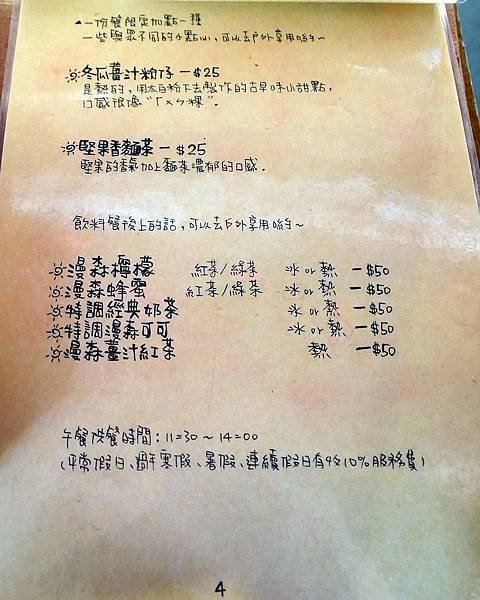 ▲一份餐限定加點一種
一些與眾不同的小點心,可以去戶外享用喲~
冬瓜薑汁粉仔 - $25
是熱的,用太白粉下去製作的古早味小甜點,
口感很像"ㄇㄨㄞ粿"。
堅果香麵茶 - $25
堅果的香氣加上麵茶濃郁的口感。
飲料餐後上的話,可以去戶外享用喲~
漫森檸檬 紅茶/綠茶 冰or熱 -$50
漫森蜂蜜 紅茶/綠茶 冰or熱 -$50
特調經典奶茶 冰or熱 -$50
特調漫森可可 冰or熱 -$50
漫森薑汁紅茶 熱 -$50
午餐供餐時間:11:30~14:00
(平常假日、過年寒假、暑假、連續假日有收10%服務費)
4